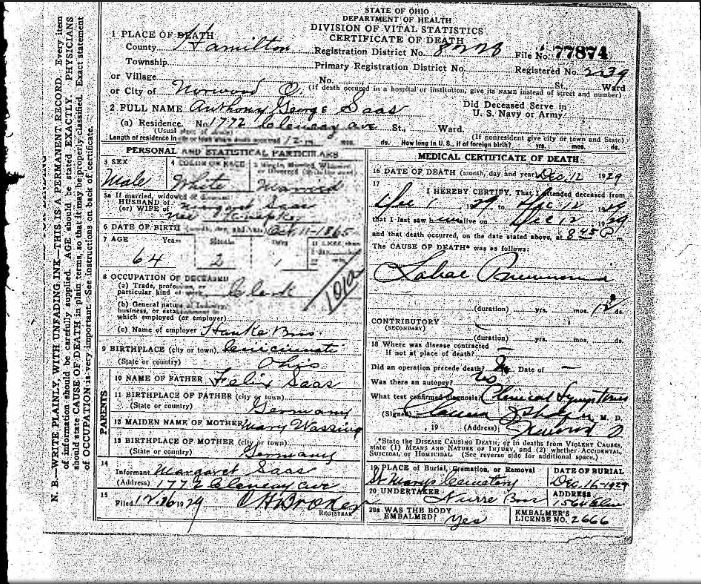 STATE OF OHIO
DEPARTMENT OF HEALTH
DIVISION OF VITAL STATISTICS
CERTIFICATE OF DEATH
1 PLACE OF DEATH
County Hamilton Registration District No. File No. 77874
Township Primary Registration District No. Registered No. 2239
or Village No. St., Ward
or City of Norwood O. (If death occurred in a hospital or institution, give its NAME instead of street and number)
2 FULL NAME Anthony George Saas Did Deceased Serve in U. S. Navy or Army
(a) Residence. No. 1772 Cleneay ave St., Ward.
(Usual place of abode) (If nonresident give city or town and State)
Length of residence in city or town where death occurred yrs. mos. ds. How long in U. S., if of foreign birth? yrs. mos. ds.
PERSONAL AND STATISTICAL PARTICULARS
3 SEX Male
4 COLOR OR RACE White
5 Single, Married, Widowed, or Divorced (write the word) Married
5a If married, widowed or divorced
HUSBAND of
(or) WIFE of Saas
6 DATE OF BIRTH (month, day, and year) Oct 11-1865
7 AGE Years Months Days
64 2 1
8 OCCUPATION OF DECEASED
(a) Trade, profession, or
particular kind of work Clerk
(b) General nature of industry,
business, or establishment in
which employed (or employer)
(c) Name of employer Hanke Bros.
9 BIRTHPLACE (city or town) Cincinnati
(State or country) Ohio
PARENTS
10 NAME OF FATHER Felix Saas
11 BIRTHPLACE OF FATHER (city or town)
(State or country) Germany
12 MAIDEN NAME OF MOTHER Mary Wassing
13 BIRTHPLACE OF MOTHER (city or town)
(State or country) Germany
14
Informant Margaret Saas
(Address) 1772 Cleneay ave
15
Filed 12/16 1929
REGISTRAR
MEDICAL CERTIFICATE OF DEATH
16 DATE OF DEATH (month, day, and year) Dec. 12 1929
17
I HEREBY CERTIFY, That I attended deceased from
Dec 1 29 to Dec 12 29
that I last saw him alive on Dec 12 29
and that death occurred, on the date stated above, at 8:45 P m.
The CAUSE OF DEATH* was as follows:
Lobar Pneumonia
(duration) yrs. mos. 12 ds.
CONTRIBUTORY
(SECONDARY)
(duration) yrs. mos. ds.
18 Where was disease contracted
If not at place of death?
Did an operation precede death? Date of —
Was there an autopsy? No
What test confirmed diagnosis? Clinical Symptoms
(Signed) M. D.
, 19 (Address) Norwood O
*State the DISEASE CAUSING DEATH, or in deaths from VIOLENT CAUSES, state (1) MEANS AND NATURE OF INJURY, and (2) whether ACCIDENTAL, SUICIDAL, or HOMICIDAL. (See reverse side for additional space.)
19 PLACE of Burial, Cremation, or Removal DATE OF BURIAL
St Marys Cemetery Dec. 16-1929
20 UNDERTAKER Nurre Bros ADDRESS
20a WAS THE BODY EMBALMED? Yes EMBALMER'S LICENSE NO. 2666
N. B.—WRITE PLAINLY, WITH UNFADING INK—THIS IS A PERMANENT RECORD. Every item
of information should be carefully supplied. AGE should be stated EXACTLY. PHYSICIANS
should state CAUSE OF DEATH in plain terms, so that it may be properly classified. Exact statement
of OCCUPATION is very important. See instructions on back of certificate.